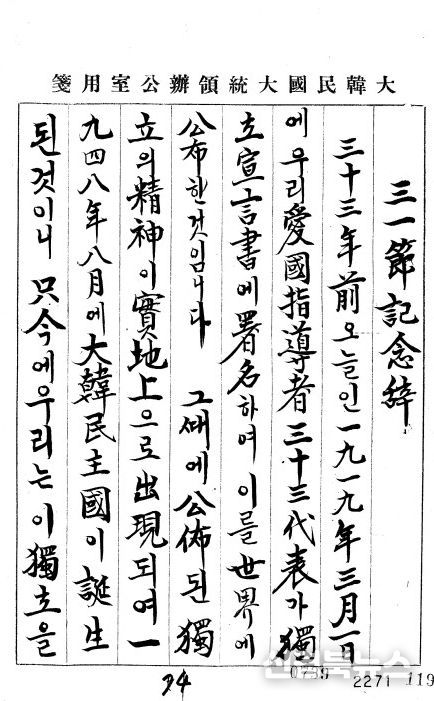 大韓民國大統領辦公室用箋
三一節記念辭
三十三年前오늘인一九一九年三月一日
에우리愛國指導者三十三代表가獨
立宣言書에署名하여이를世界에
公布한것임니다 그때에公佈된獨
立의精神이實地上으로出現되여一
九四八年八月에大韓民主國이誕生
된것이니 只今에우리는이獨立을
94
0739 2271 119